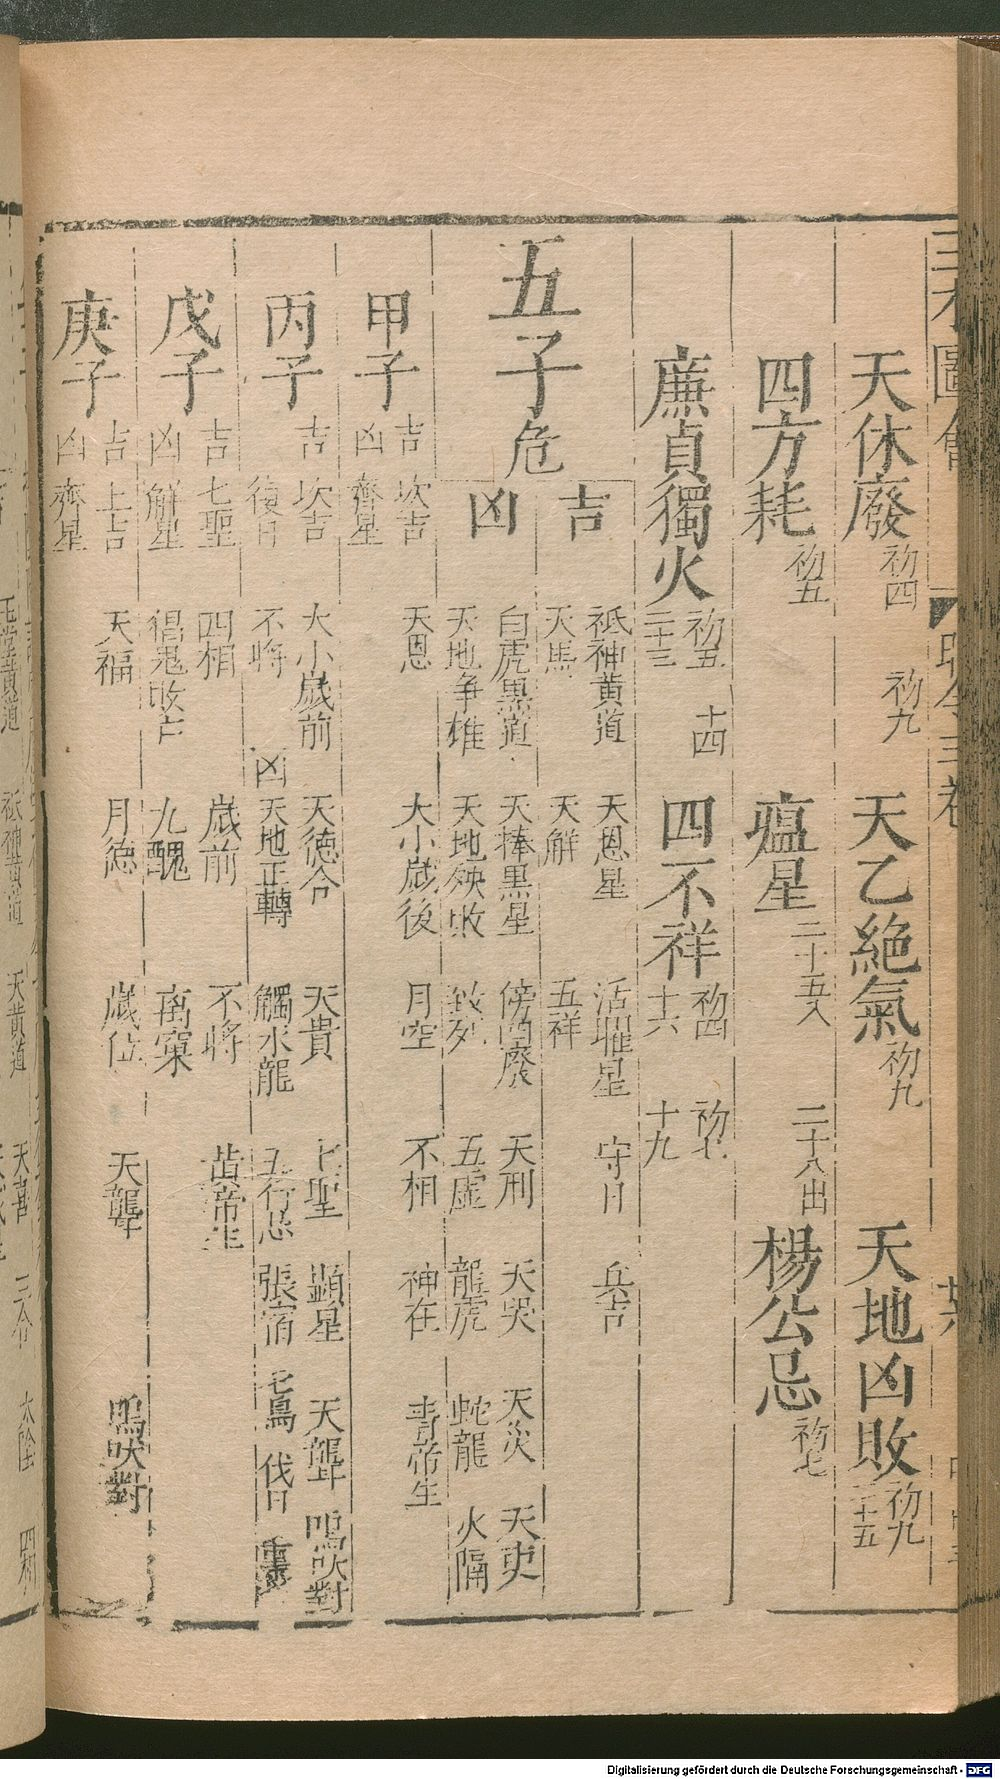 三才圖會 時令三卷
天休廢 初四 初九 天乙絕氣 初九 天地凶敗 初九 二十五
四方耗 初五 瘟星 二十五入 二十八出 楊公忌 初七
廉貞獨火 初五 十四 二十三 四不祥 初四 初七 十六 十九
五子危
吉 祗神黃道 天恩星 活曜星 守日 兵吉
天馬 天解 五祥
凶 白虎黑道 天棒黑星 傍四廢 天刑 天哭 天災 天吏
天地争雄 天地殃敗 致死 五虛 龍虎 蛇龍 火隔
甲子 吉 坎吉 天恩 大小歲後 月空 不相 神在 青帝生
凶 齊星
丙子 吉 坎吉 大小歲前 天德合 天貴 七聖 顯星 天聾 鳴吠對
復日 不將 凶 天地正轉 觸水龍 五行忌 張宿 七鳥 伐日 重
戊子 吉 七聖 四相 歲前 不將 苗帝生
凶 解星 猖鬼敗亡 九醜 萬窠
庚子 吉 上吉 天福 月德 歲位 天聾 鳴吠對
凶 齊星
玉堂黃道 祗神黃道 天黃道 天喜 三合 太陰 四相
Digitalisierung gefördert durch die Deutsche Forschungsgemeinschaft - DFG